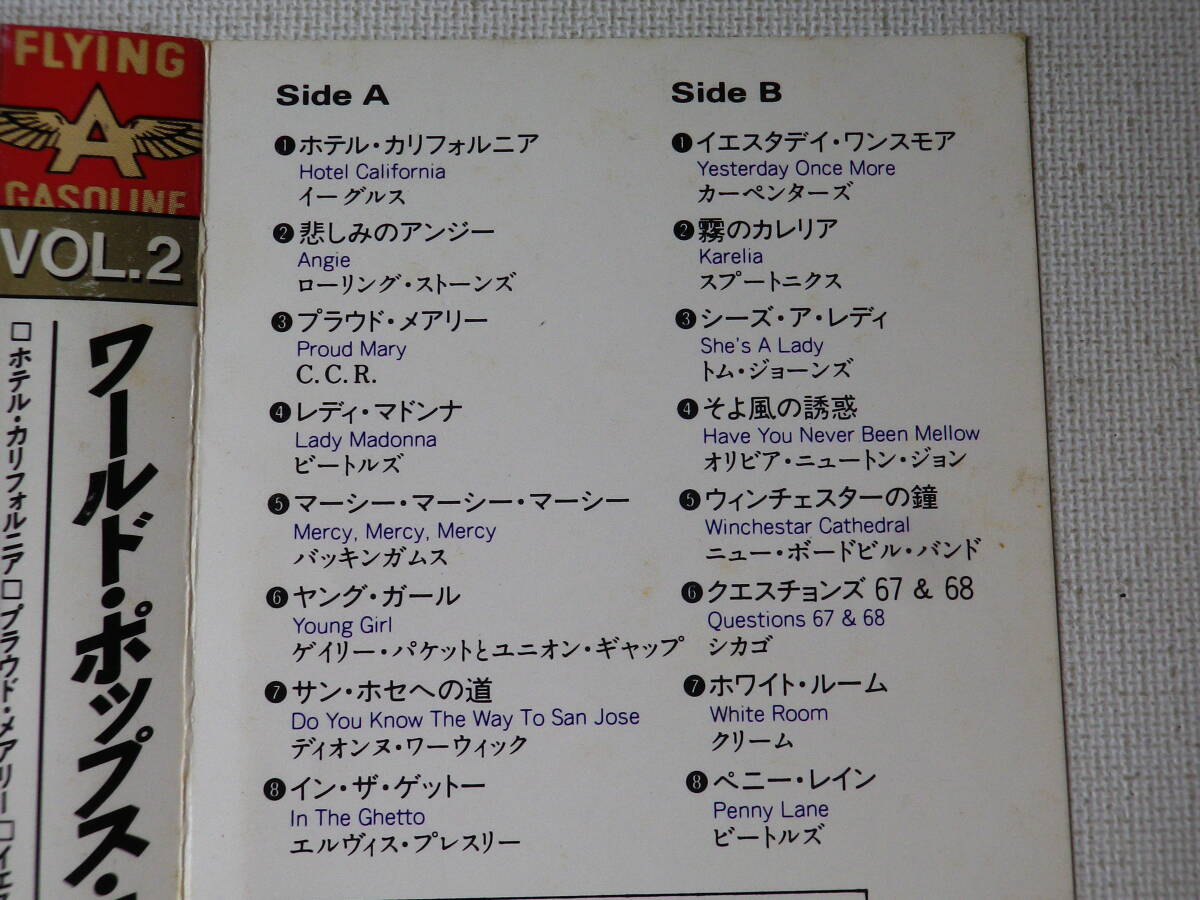 FLYING
A
GASOLINE
VOL.2
ワールド・ポップス・
□ホテル・カリフォルニア□プラウド・メアリー□イエス
Side A
❶ホテル・カリフォルニア
Hotel California
イーグルス
❷悲しみのアンジー
Angie
ローリング・ストーンズ
❸プラウド・メアリー
Proud Mary
C.C.R.
❹レディ・マドンナ
Lady Madonna
ビートルズ
❺マーシー・マーシー・マーシー
Mercy, Mercy, Mercy
バッキンガムス
❻ヤング・ガール
Young Girl
ゲイリー・パケットとユニオン・ギャップ
❼サン・ホセへの道
Do You Know The Way To San Jose
ディオンヌ・ワーウィック
❽イン・ザ・ゲットー
In The Ghetto
エルヴィス・プレスリー
Side B
❶イエスタデイ・ワンスモア
Yesterday Once More
カーペンターズ
❷霧のカレリア
Karelia
スプートニクス
❸シーズ・ア・レディ
She's A Lady
トム・ジョーンズ
❹そよ風の誘惑
Have You Never Been Mellow
オリビア・ニュートン・ジョン
❺ウィンチェスターの鐘
Winchestar Cathedral
ニュー・ボードビル・バンド
❻クエスチョンズ 67 & 68
Questions 67 & 68
シカゴ
❼ホワイト・ルーム
White Room
クリーム
❽ペニー・レイン
Penny Lane
ビートルズ